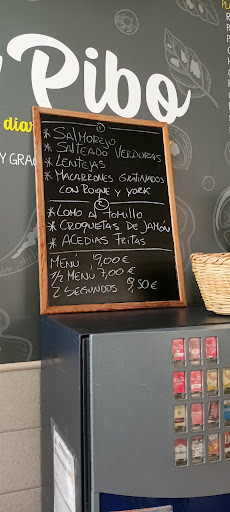 Pibo
diar
Y GRAC
①
* SALMOREJO
* SALTEADO VERDURAS
* LENTEJAS
* MACARRONES GRATINADOS
CON ROQUE Y YORK
②
* LOMO AL TOMILLO
* CROQUETAS DE JAMÓN
* ACEDIAS FRITAS
MENÚ 9,00€
1/2 MENÚ 7,00€
2 SEGUNDOS 9,50€